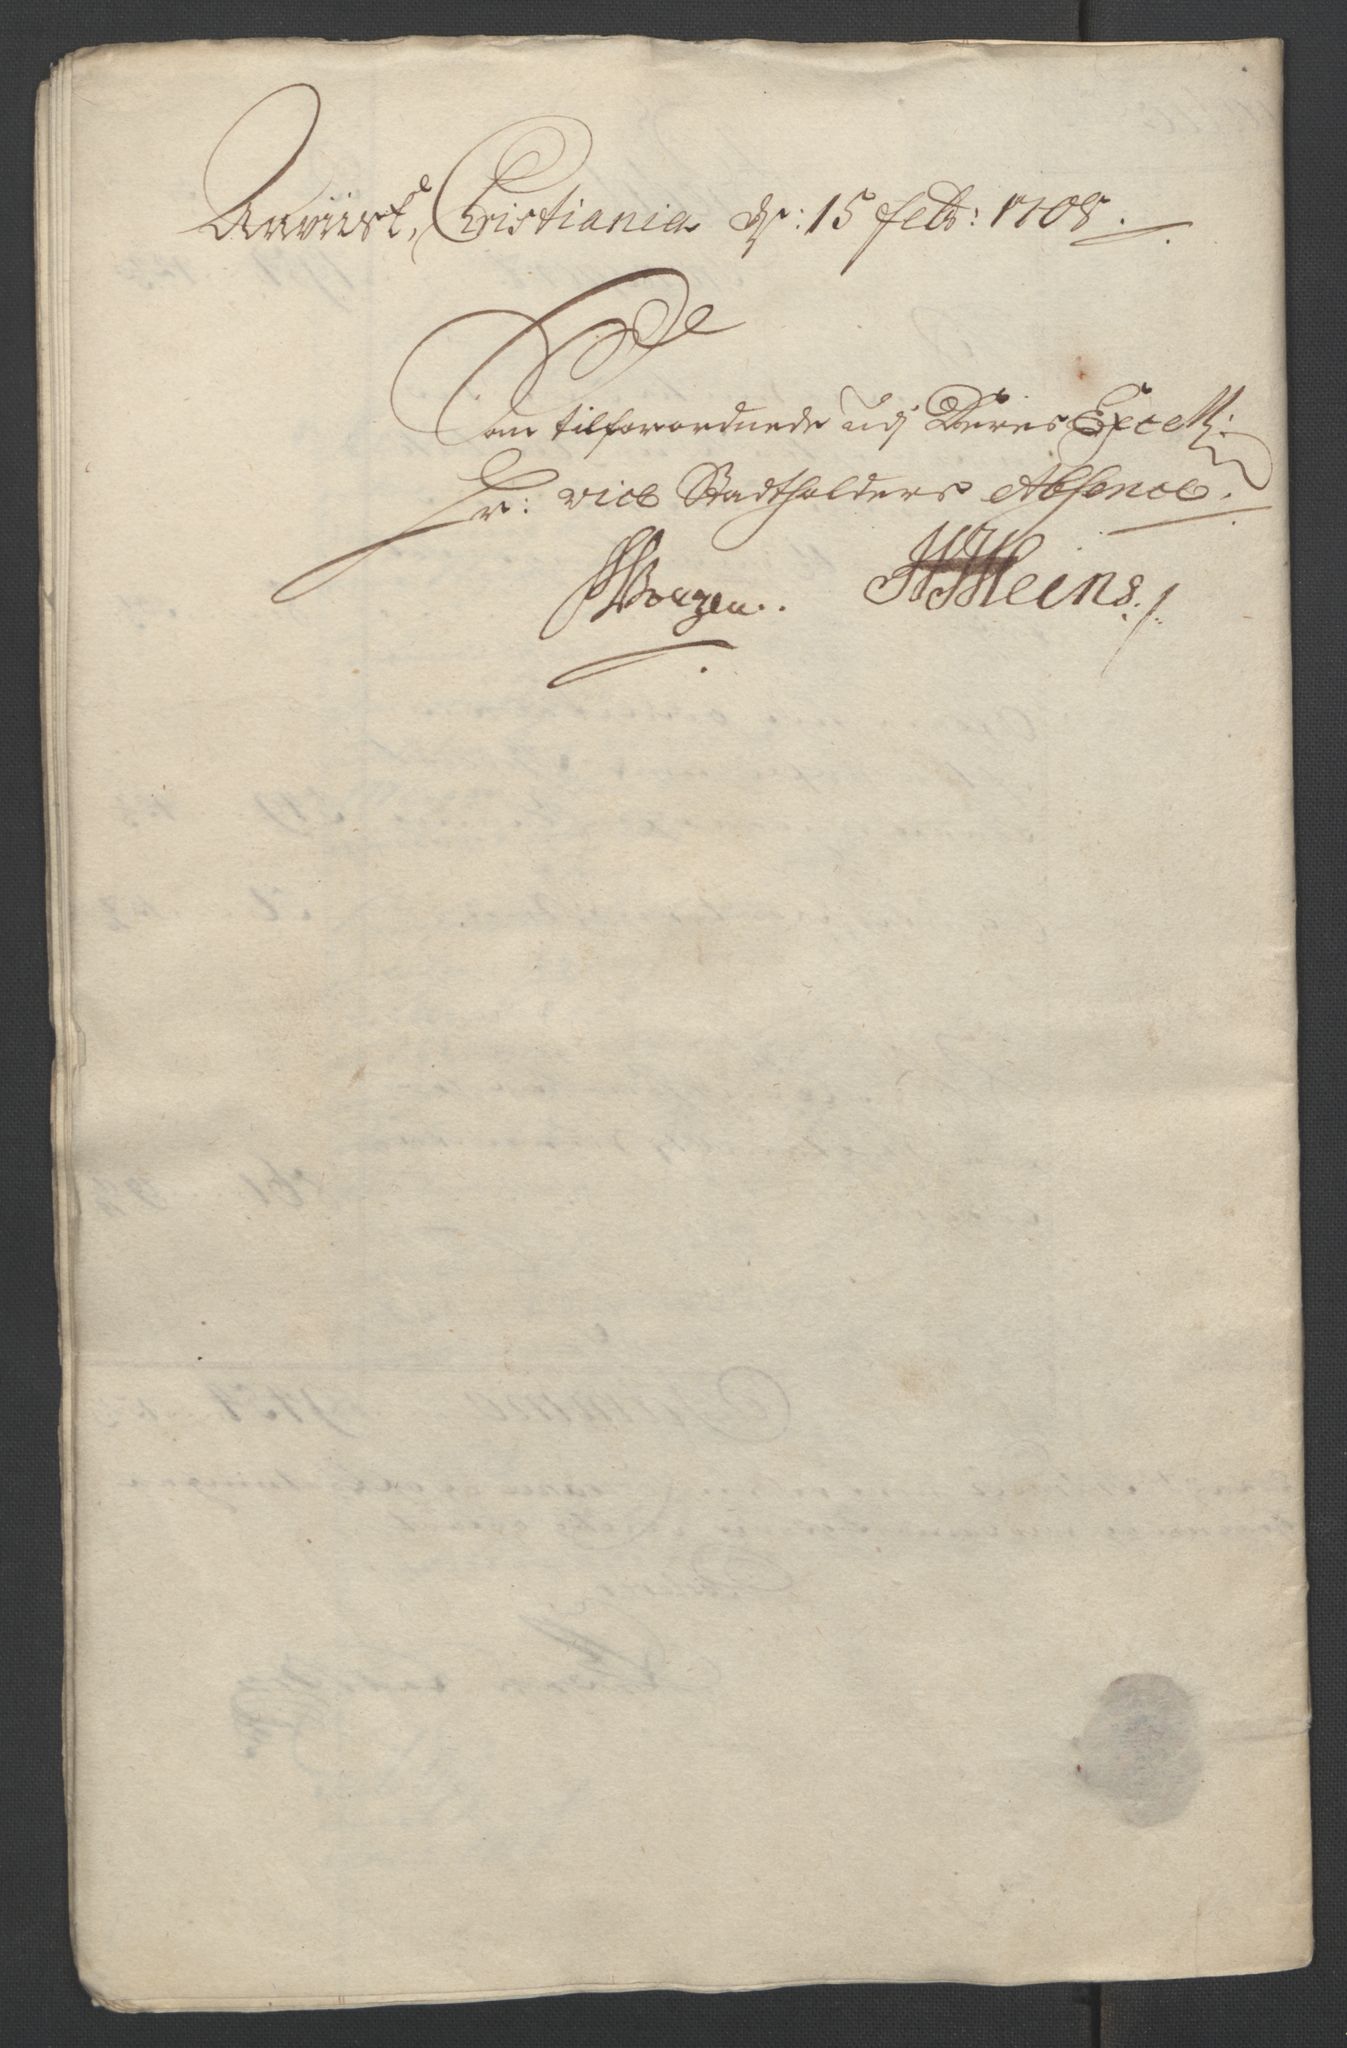 Anviist, Cristiania d: 15 febr: 1708.
Som tilforordnede udj Deres Excell:
Hr: vice Stadtholders Absence.
Borgen. HHHeins.